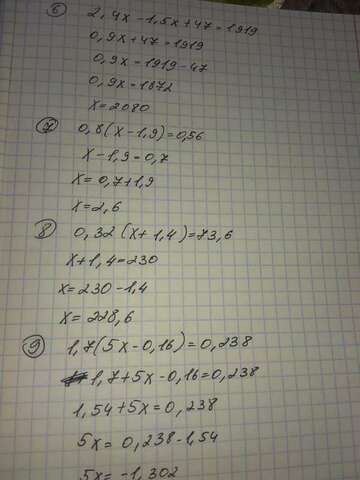 6 2,4x - 1,5x + 47 = 1919
0,9x + 47 = 1919
0,9x = 1919 - 47
0,9x = 1872
x = 2080
7 0,8(x - 1,9) = 0,56
x - 1,9 = 0,7
x = 0,7 + 1,9
x = 2,6
8 0,32(x + 1,4) = 73,6
x + 1,4 = 230
x = 230 - 1,4
x = 228,6
9 1,7(5x - 0,16) = 0,238
1,7 + 5x - 0,16 = 0,238
1,54 + 5x = 0,238
5x = 0,238 - 1,54
5x = -1,302